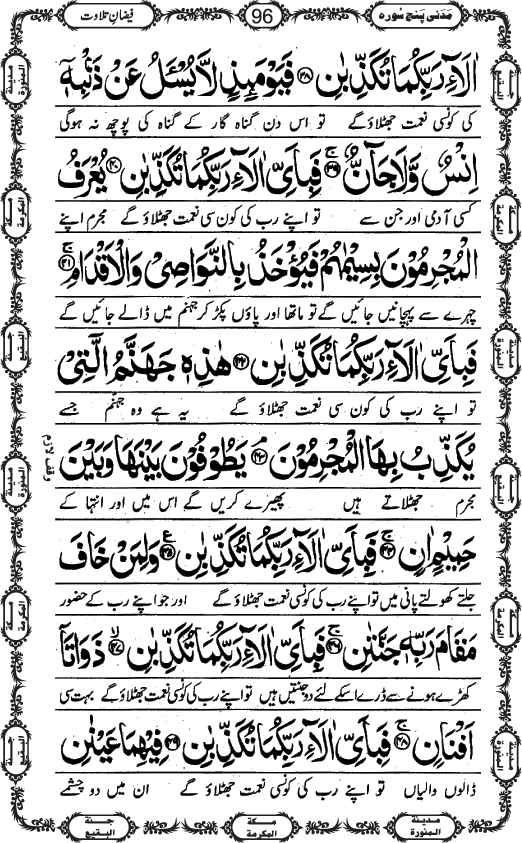 مَدَنی پنج سُورہ
96
فیضانِ تلاوت
اٰلَآءِ رَبِّكُمَا تُكَذِّبٰنِ ﴿۳۸﴾ فَیَوْمَىٕذٍ لَّا یُسْــٴَـلُ عَنْ ذَنْۢبِهٖۤ
کی کونسی نعمت جھٹلاؤ گے تو اس دن گناہ گار کے گناہ کی پوچھ نہ ہوگی
اِنْسٌ وَّ لَا جَآنٌّ ﴿۳۹﴾ فَبِاَیِّ اٰلَآءِ رَبِّكُمَا تُكَذِّبٰنِ ﴿۴۰﴾ یُعْرَفُ
کسی آدمی اور جن سے تو اپنے رب کی کون سی نعمت جھٹلاؤ گے مجرم اپنے
الْمُجْرِمُوْنَ بِسِیْمٰىهُمْ فَیُؤْخَذُ بِالنَّوَاصِیْ وَ الْاَقْدَامِ ﴿۴۱﴾
چہرے سے پہچانیں جائیں گے تو ماتھا اور پاؤں پکڑ کر جہنم میں ڈالے جائیں گے
فَبِاَیِّ اٰلَآءِ رَبِّكُمَا تُكَذِّبٰنِ ﴿۴۲﴾ هٰذِهٖ جَهَنَّمُ الَّتِیْ
تو اپنے رب کی کون سی نعمت جھٹلاؤ گے یہ ہے وہ جہنم جسے
یُكَذِّبُ بِهَا الْمُجْرِمُوْنَ ﴿۴۳﴾ یَطُوْفُوْنَ بَیْنَهَا وَ بَیْنَ
مجرم جھٹلاتے ہیں پھیرے کریں گے اس میں اور انتہا کے
حَمِیْمٍ اٰنٍ ﴿۴۴﴾ فَبِاَیِّ اٰلَآءِ رَبِّكُمَا تُكَذِّبٰنِ ﴿۴۵﴾ وَ لِمَنْ خَافَ
جلتے کھولتے پانی میں تو اپنے رب کی کونسی نعمت جھٹلاؤ گے اور جو اپنے رب کے حضور
مَقَامَ رَبِّهٖ جَنَّتٰنِ ﴿۴۶﴾ فَبِاَیِّ اٰلَآءِ رَبِّكُمَا تُكَذِّبٰنِ ﴿۴۷﴾ ذَوَاتَاۤ
کھڑے ہونے سے ڈرے اسکے لئے دو جنتیں ہیں تو اپنے رب کی کونسی نعمت جھٹلاؤ گے بہت سی
اَفْنَانٍ ﴿۴۸﴾ فَبِاَیِّ اٰلَآءِ رَبِّكُمَا تُكَذِّبٰنِ ﴿۴۹﴾ فِیْهِمَا عَیْنٰنِ
ڈالوں والیاں تو اپنے رب کی کونسی نعمت جھٹلاؤ گے ان میں دو چشمے
وقف لازم
مدینة المنورة
مكة المكرمة
جنة البقيع
مدینة المنورة
مكة المكرمة
جنة البقيع
جنة البقيع
مكة المكرمة
مدینة المنورة
جنة البقيع
مكة المكرمة
مدینة المنورة
مدینة المنورة
مكة المكرمة
جنة البقيع